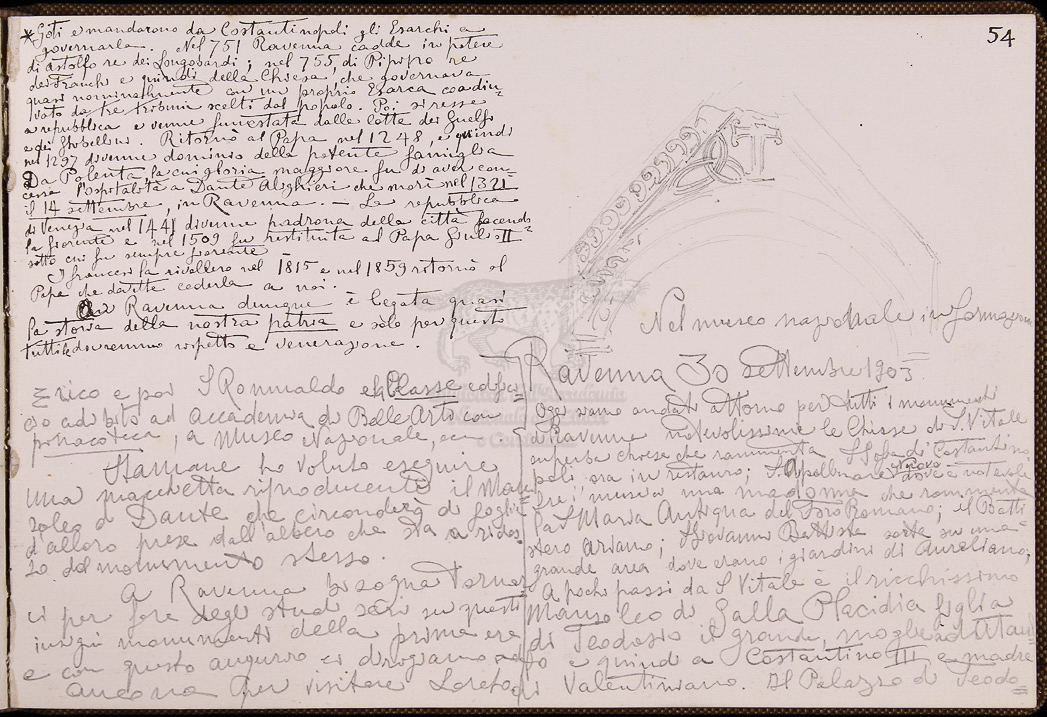 54
* Goti e mandarono da Costantinopoli gli Esarchi a
governarla. Nel 751 Ravenna cadde in potere
di Astolfo re dei Longobardi; nel 755, di Pipino re
dei Franchi e quindi della Chiesa, che governava
quasi nominalmente con un proprio Esarca coadiu-
vato da tre tribuni scelti dal popolo. Poi si resse
a repubblica e venne funestata dalle lotte dei Guelfi
e dei Ghibellini. Ritornò al Papa nel 1248, e quindi
nel 1297 divenne dominio della potente famiglia
Da Polenta, la cui gloria maggiore fu di aver con-
cessa l'ospitalità a Dante Alighieri che morì nel 1321
il 14 settembre, in Ravenna. — La repubblica
di Venezia nel 1441 divenne padrona della città facendo-
la fiorente e nel 1509 fu restituita al Papa Giulio II
sotto cui fu sempre fiorente
I francesi la rivollero nel 1815 e nel 1859 ritornò al
Papa che dovette cederla a noi.
Ravenna dunque è legata quasi
la storia della nostra patria e solo per questo
tutti le dovremmo rispetto e venerazione.
Nel museo nazionale in formazione
Ravenna 30 settembre 1903
Oggi siamo andati attorno per tutti i monumenti
di Ravenna notevolissime le Chiese di S. Vitale
superba chiesa che rammenta S. Sofia di Costantino-
poli ora in restauro; S. Apollinare nuovo dove è notevole
fra i musaici una madonna che rammenta
la S. Maria Antiqua del Foro Romano; il Batti
stero Ariano; S. Giovanni Battista sorta su una
grande area dove erano i giardini di Aureliano;
A pochi passi da S. Vitale è il ricchissimo
Mausoleo di Galla Placidia figlia
di Teodosio il grande, moglie ad Atau
fo e quindi a Costantino III e madre
di Valentiniano. Il Palazzo di Teodo=
rico e poi S. Romualdo Classe edifi=
cio adibito ad accademia di Belle Arti con
pinacoteca, a Museo Nazionale, ecc
Stamane ho voluto eseguire
una macchietta riproducente il Mau=
soleo di Dante, che circonderò di foglie
d'alloro prese dall'albero che sta a ridos-
so del monumento stesso.
A Ravenna bisogna tornar
ci per fare degli studi seri su questi
insigni monumenti della prima era
e con questo augurio ci dirigiamo ad
Ancona per visitare Loreto.